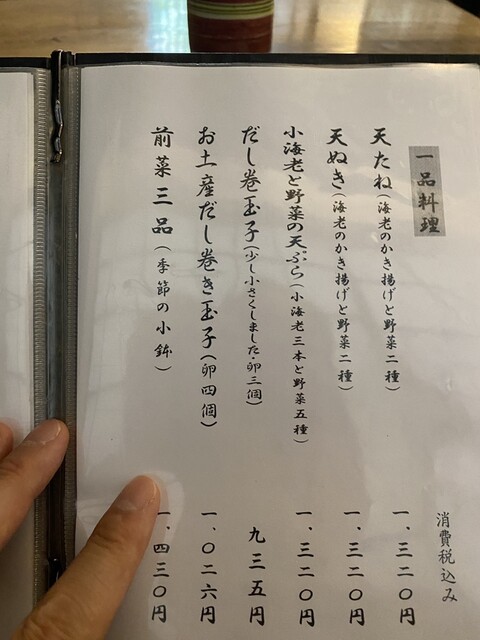 一品料理
消費税込み
天たね(海老のかき揚げと野菜二種) 一、三二〇円
天ぬき(海老のかき揚げと野菜二種) 一、三二〇円
小海老と野菜の天ぷら(小海老三本と野菜五種) 一、三二〇円
だし巻玉子(少し小さくしました・卵三個) 九三五円
お土産だし巻き玉子(卵四個) 一、〇二六円
前菜三品(季節の小鉢) 一、四三〇円